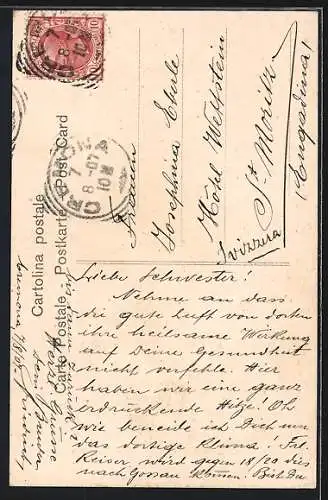 Cartolina postale
Carte Postale Postkarte Post Card
CREMONA
7
8-07
10 M
Frauen
Josephina Eberle
Hôtel Wettstein
St. Moritz
(Engadina)
Svizzera
Liebe Schwester!
Nehme an dass
die gute Luft von dorten
ihre heilsame Wirkung
auf Deine Gesundheit
nicht verfehle. Hier
haben wir eine ganz
erdrückende Hitze. Oh
wie beneide ich Dich um
das dortige Klima! Frl.
Reiser wird gegen 18/20 dies
nach Gossau kommen. Bist Du